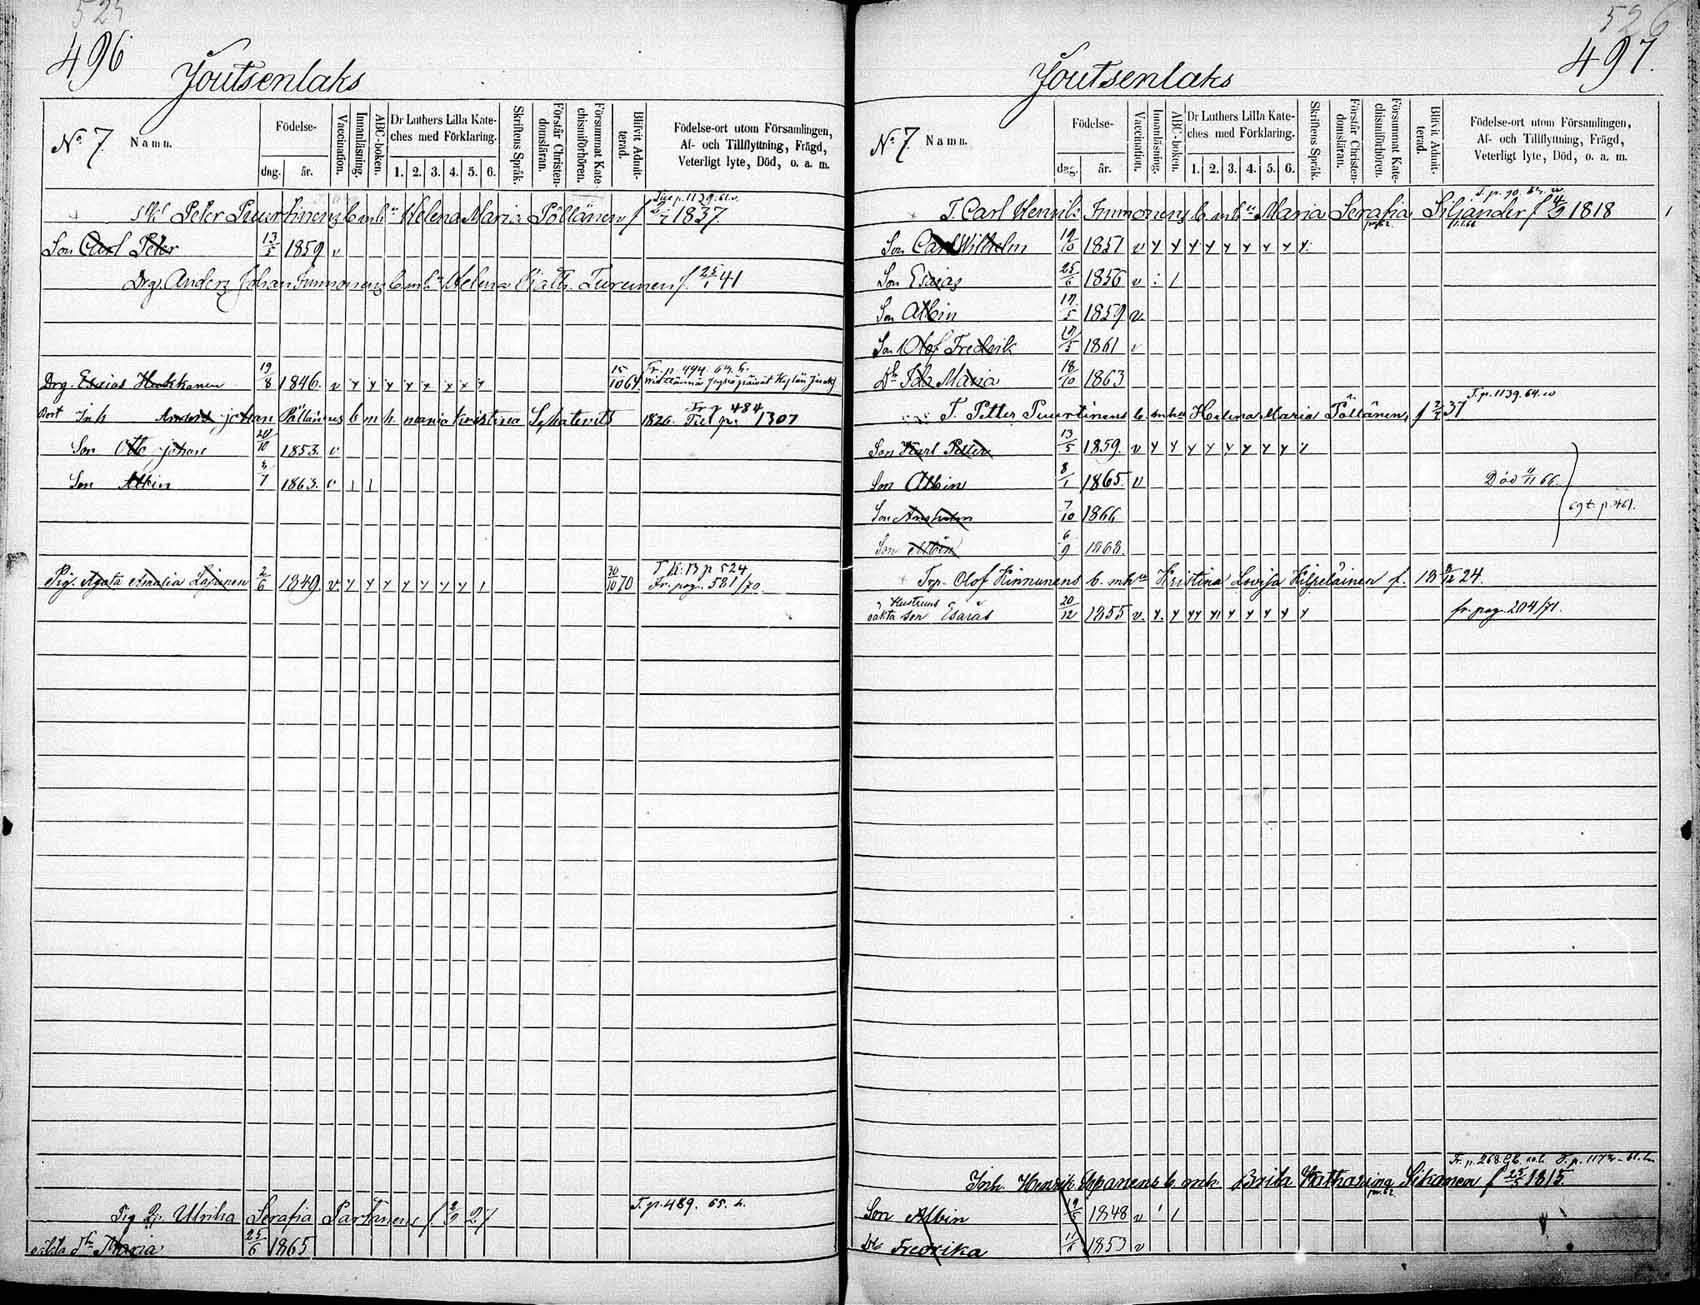 496
Joutsenlaks
No. 7. Namn.
Födelse- dag. år.
Vaccination.
Innanläsning.
ABC-boken.
Dr Luthers Lilla Kate-
ches med Förklaring.
1. 2. 3. 4. 5. 6.
Skriftens Språk.
Förstår Christen-
domsläran.
Försummat Kate-
chismiförhören.
Blifvit Admit-
terad.
Födelse-ort utom Församlingen,
Af- och Tillflyttning, Frägd,
Veterligt lyte, Död, o. a. m.
p. 1139. 61.
Peter Puurtinens b. m. h. Helena Maria Pöllänen f 2/1 1837.
Son Carl Peter 13/5 1859 v
Drg. Anders Johan Immonens b. m. h. Helena Turunen f. 25/1 41
Drg. Esaias Hukkanen 19/8 1846. v y y y y y y y y 15/10 64 Fr. p. 494
Inh. Johan Pöllänens b m h maria Kristina 1826. Fr p 484 Till p. 1307
Son Otto Johan 20/10 1853. v
Son Albin 8/7 1863. v 1 1
Pig. Agata Amalia Lajunen 2/6 1849 v. y y y y y y y 1 30/10 70 p 524 Fr. pag. 581/70.
Pig Ulrika Serafia Partanens f 2/9 27 T. p. 489. 65.
oäkta Dtr Maria 25/6 1865
526
497.
Joutsenlaks
No. 7 Namn.
Födelse- dag. år.
Vaccination.
Innanläsning.
ABC-boken.
Dr Luthers Lilla Kate-
ches med Förklaring.
1. 2. 3. 4. 5. 6.
Skriftens Språk.
Förstår Christen-
domsläran.
Försummat Kate-
chismiförhören.
Blifvit Admit-
terad.
Födelse-ort utom Församlingen,
Af- och Tillflyttning, Frägd,
Veterligt lyte, Död, o. a. m.
T. Carl Henrik Immonens b. m. h. Maria Serafia Siljander f 1818
Son Carl Wilhelm 19/10 1851 v y y y y y y y y y
Son Esaias 25/6 1856 v : 1
Son Albin 19/5 1859 v.
Son Olof Fredrik 1861 v
Dtr Ida Maria 18/10 1863
T. p. 1139. 64.
T. Petter Puurtinens b. m. h. Helena Maria Pöllänen, f 2/1 37
Son Karl Petter 13/5 1859. v y y y y y y y y y
Son Albin 8/1 1865. v Död 66.
Son 7/10 1866
p. 461.
Son Albin 6/9 1868.
Trp. Olof Kinnunens b. mh. Kristina Lovisa Kilpeläinen f. 18 8/12 24.
Hustruns
oäkta son Esaias 20/12 1855 v. y. y yy y y y y y y fr. pag. 204/71.
Fr. p. 268.
Inh. Henrik Sepänens b mh Brita Katharina Sikanen f 25/5 1815
Son Albin 1848 v ' 1
Dtr Fredrika 1853 v